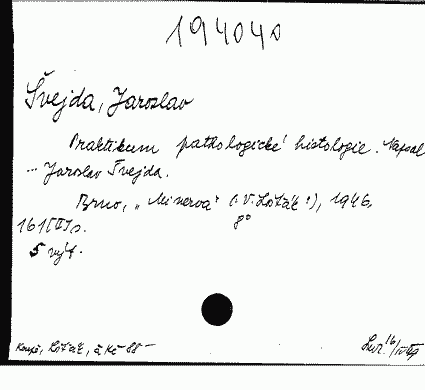 194040
Švejda, Jaroslav
Praktikum pathologické histologie. Napsal
... Jaroslav Švejda.
Brno, „Minerva“ (: V. Lošák :), 1946.
161 [III] s. 8°
5 výt.
Koupě, Lošák, à Kč 88 –